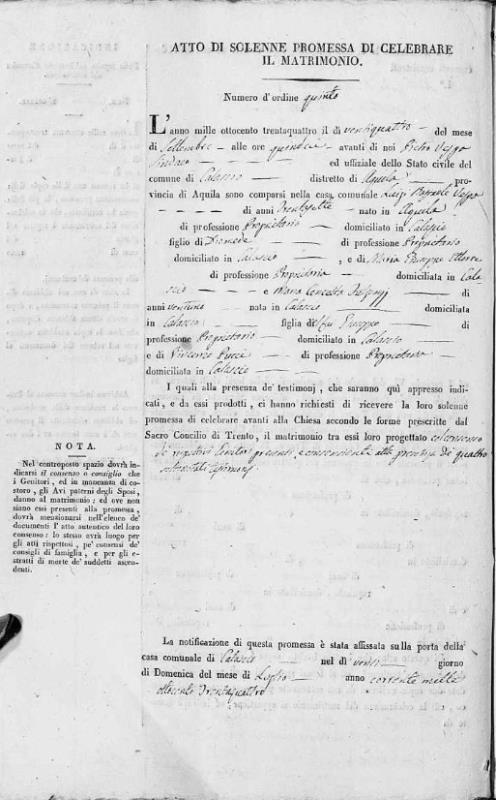 ATTO DI SOLENNE PROMESSA DI CELEBRARE
IL MATRIMONIO.
Numero d'ordine quinto
L'anno mille ottocento trentaquattro il dì ventiquattro del mese
di Settembre alle ore quindici avanti di noi Pietro
Sindaco ed uffiziale dello Stato civile del
comune di Calascio distretto di Aquila pro-
vincia di Aquila sono comparsi nella casa comunale Luigi
di anni trentasette nato in Aquila
di professione Proprietario domiciliato in Calascio
figlio di Diomede di professione Proprietario
domiciliato in Calascio , e di Maria Giuseppa
di professione Proprietaria domiciliata in Cala
scio e Maria Concetta di
anni ventuno nata in Calascio domiciliata
in Calascio figlia di di
professione Proprietario domiciliato in Calascio
e di Pucci di professione Proprietaria
domiciliata in Calascio
I quali alla presenza de' testimonj, che saranno quì appresso indi-
cati, e da essi prodotti, ci hanno richiesti di ricevere la loro solenne
promessa di celebrare avanti alla Chiesa secondo le forme prescritte dal
Sacro Concilio di Trento, il matrimonio tra essi loro progettato col consenso
de' rispettivi Genitori presenti, e consenzienti alla presenza di quattro
testimonj
NOTA.
Nel controposto spazio dovrà in-
dicarsi il consenso o consiglio che
i Genitori, ed in mancanza di co-
storo, gli Avi paterni degli Sposi,
danno al matrimonio; ed ove non
siano essi presenti alla promessa,
dovrà menzionarsi nell'elenco de'
documenti l'atto autentico del loro
consenso: lo stesso avrà luogo per
gli atti rispettosi, pe' consensi de'
consigli di famiglia, e per gli e-
stratti di morte de' suddetti ascen-
denti.
La notificazione di questa promessa è stata affissata sulla porta della
casa comunale di Calascio nel dì venti giorno
di Domenica del mese di Luglio anno corrente mille
ottocento trentaquattro